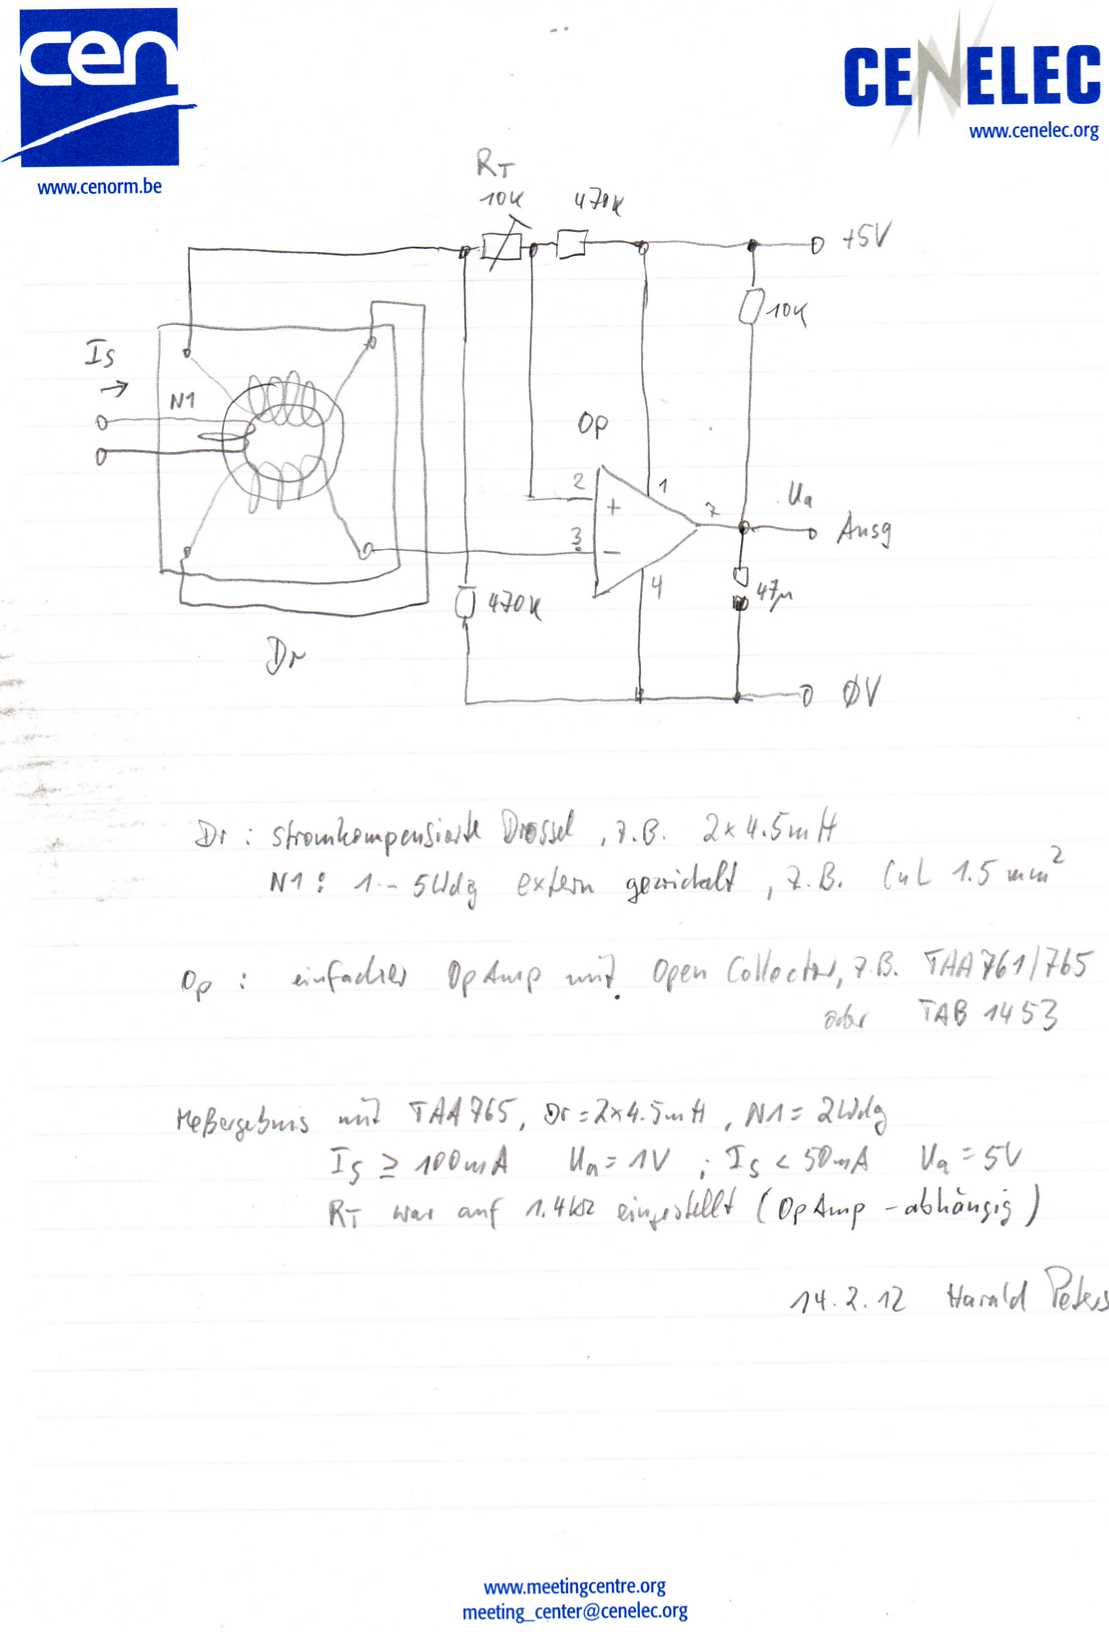 cen
CENELEC
www.cenelec.org
www.cenorm.be
RT
10K
470K
+5V
10K
Is
N1
Op
2
+
1
3
−
7
Ua
Ausg
4
470K
47µ
Dr
ØV
Dr : stromkompensierte Drossel, z.B. 2×4.5mH
N1: 1 -- 5Wdg extern gewickelt, z.B. CuL 1.5 mm²
Op : einfacher OpAmp mit Open Collector, z.B. TAA761/765
oder TAB 1453
Meßergebnis mit TAA765, Dr=2×4.5mH, N1=2Wdg
Is ≥ 100mA Ua=1V ; Is < 50mA Ua=5V
RT war auf 1.4kΩ eingestellt (OpAmp-abhängig)
14.2.12 Harald Peters
www.meetingcentre.org
meeting_center@cenelec.org